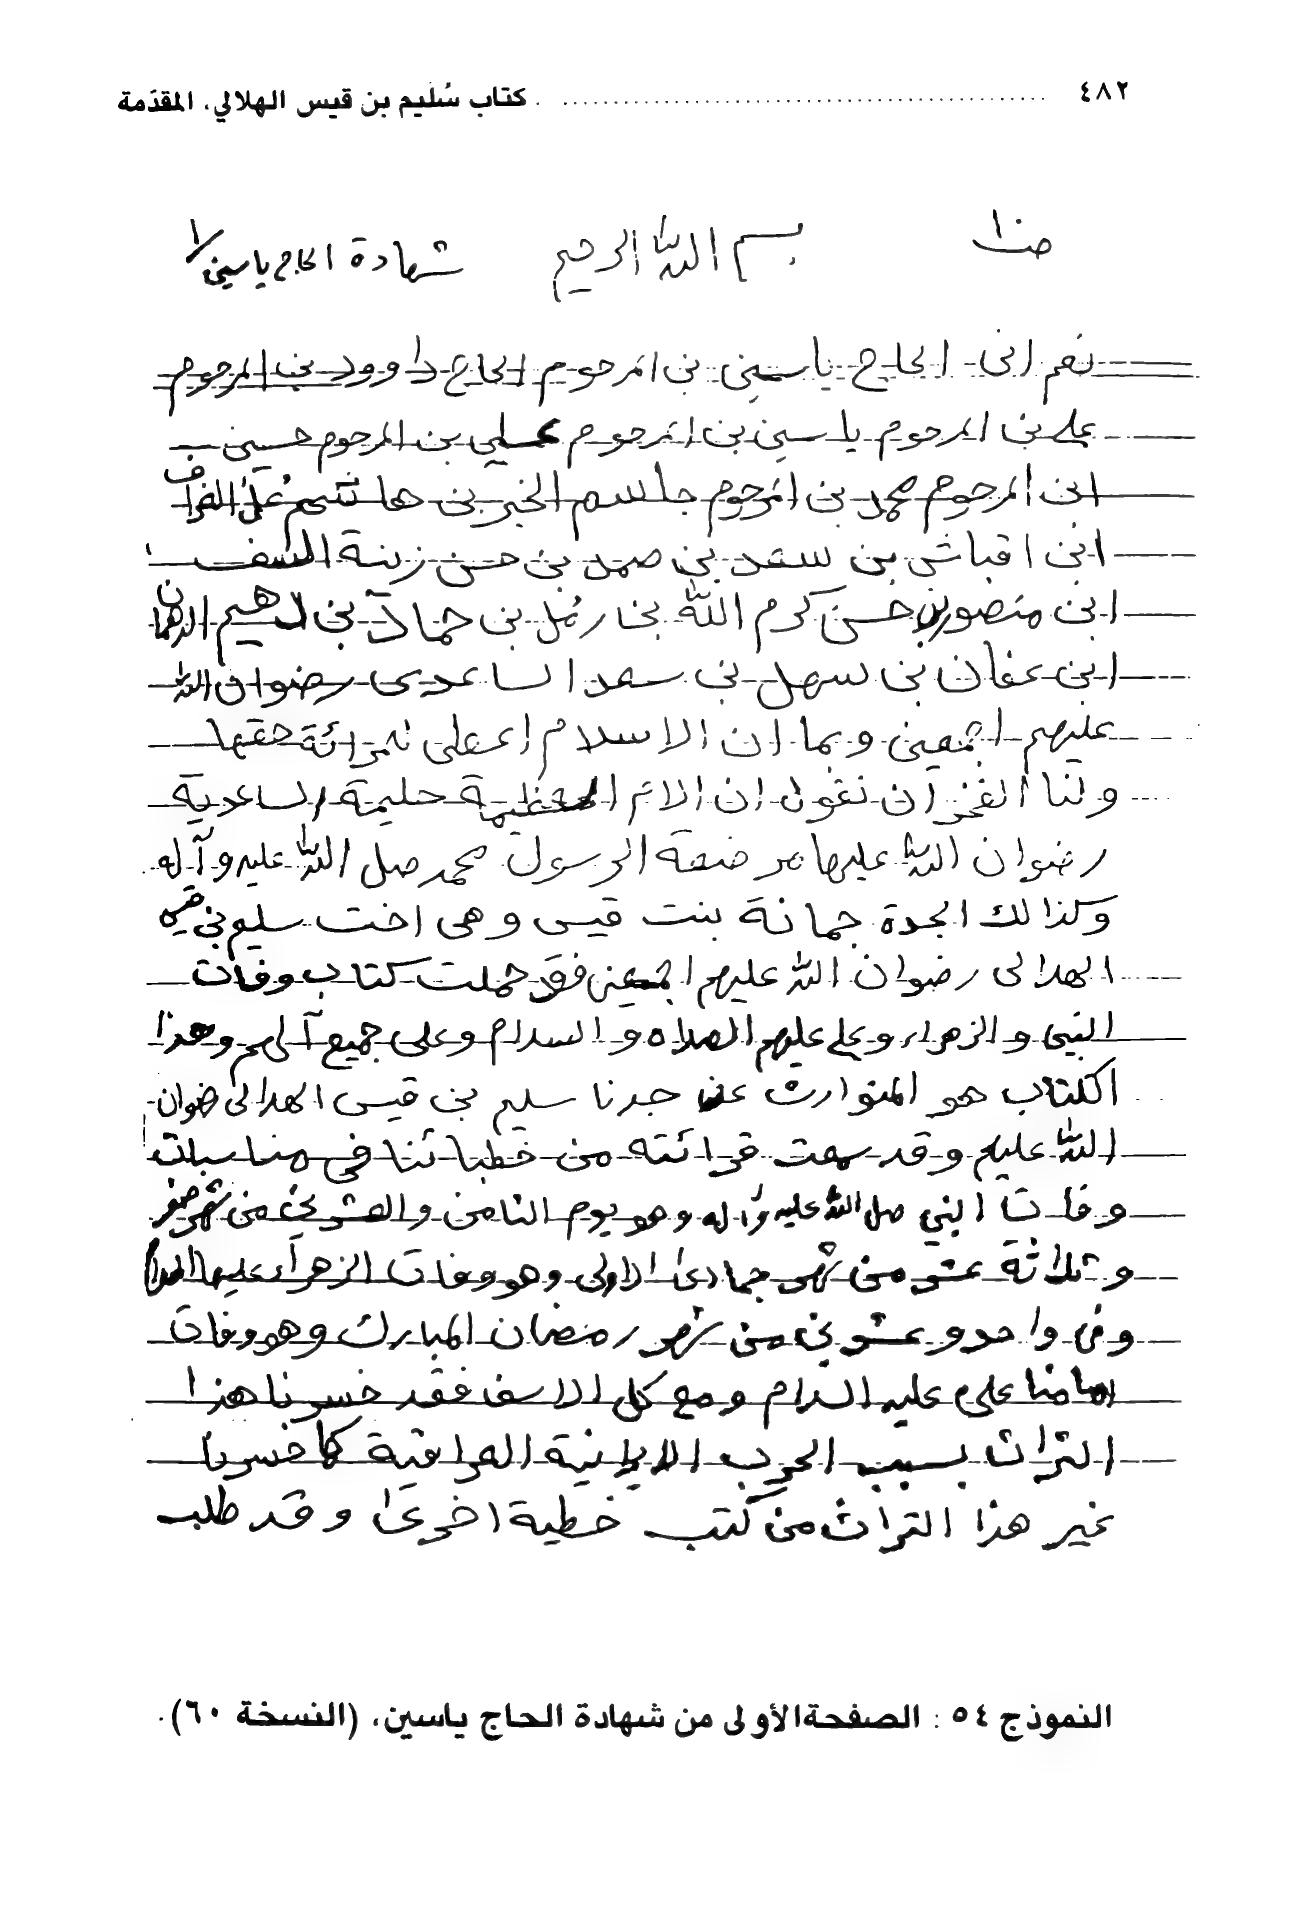 ٤٨٢ ........ كتاب سُليم بن قيس الهلالي، المقدّمة
بسم الله الرحيم شهادة الحاج ياسين / ١
نعم اني الحاج ياسين بن المرحوم الحاج داوود بن المرحوم
علي بن المرحوم ياسين بن المرحوم علي بن المرحوم حسين
ابن المرحوم محمد بن المرحوم جاسم الخير بن هاشم
ابن اقباش بن سعد بن صمد بن حسن زينة
ابن منصور بن حسن كرم الله بن حماد بن
ابن عفان بن سهل بن سعد الساعدي رضوان الله
عليهم اجمعين وبما ان الاسلام اعطى حقها
ولنا الفخر ان نقول ان الام العظيمة حليمة الساعدية
رضوان الله عليها مرضعة الرسول محمد صل الله عليه وآله
وكذالك الجدة جمانة بنت قيس وهي اخت سليم بن قيس
الهلالي رضوان الله عليهم اجمعين فقد حملت كتاب وفات
النبي والزهراء وعلي عليهم الصلاه والسلام وعلى جميع آلهم وهذا
الكتاب هو المتوارث عن جدنا سليم بن قيس الهلالي رضوان
الله عليهم وقد سمعت قرائته من خطبائنا في مناسبات
وفات النبي صل الله عليه وآله وهو يوم الثامن والعشرين من شهر صفر
وثلاثة عشر من شهر جمادى الاولى وهو وفات الزهراء عليها السلام
وفي واحد وعشرين من شهر رمضان المبارك وهو وفات
امامنا علي عليه السلام ومع كل الاسف فقد خسرنا هذا
التراث بسبب الحرب الايرانية العراقية كما خسرنا
غير هذا التراث من كتب خطية اخرى وقد طلب
النموذج ٥٤ : الصفحة الأولى من شهادة الحاج ياسين، (النسخة ٦٠).